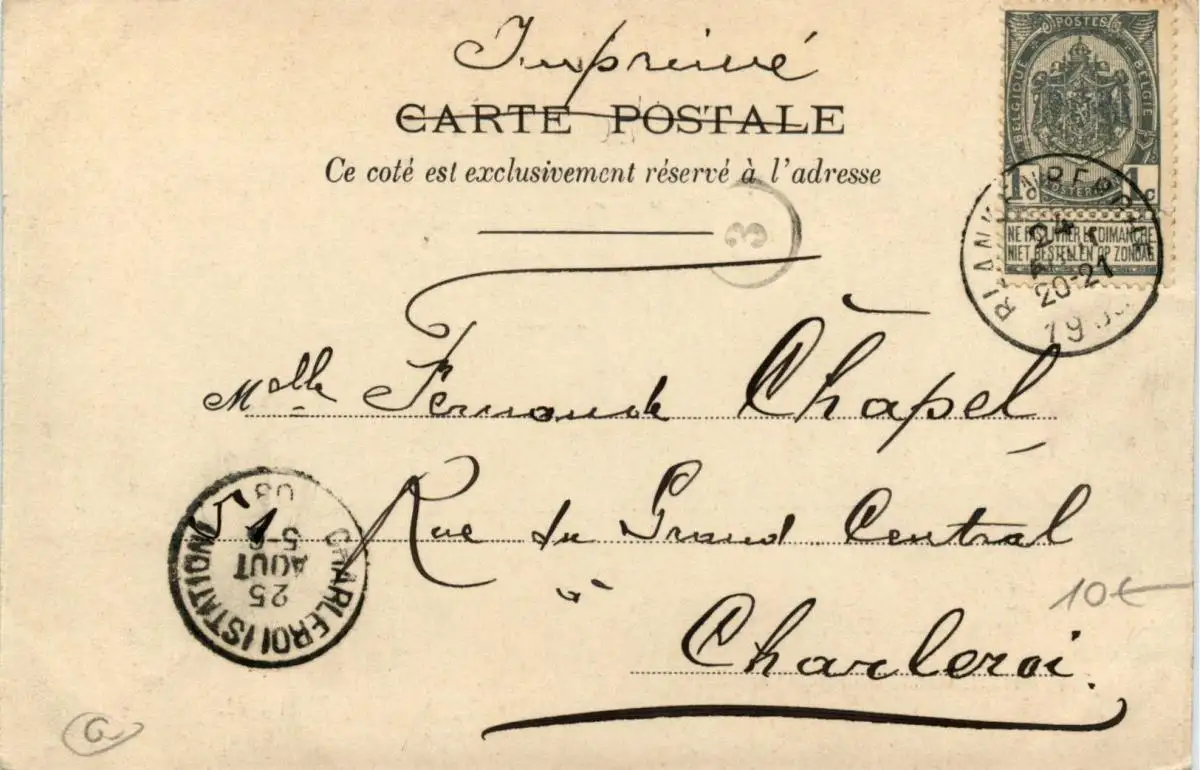 Imprimé
CARTE POSTALE
Ce coté est exclusivement réservé à l'adresse
POSTES
BELGIQUE BELGIË
1c 1c
NE PAS LIVRER LE DIMANCHE
NIET BESTELLEN OP ZONDAG
24
20-21
3
Melle Fernande Chapel
Rue du Grand Central
à
Charleroi.
CHARLEROI (STATION)
25
AOUT
5-
08
10€
a